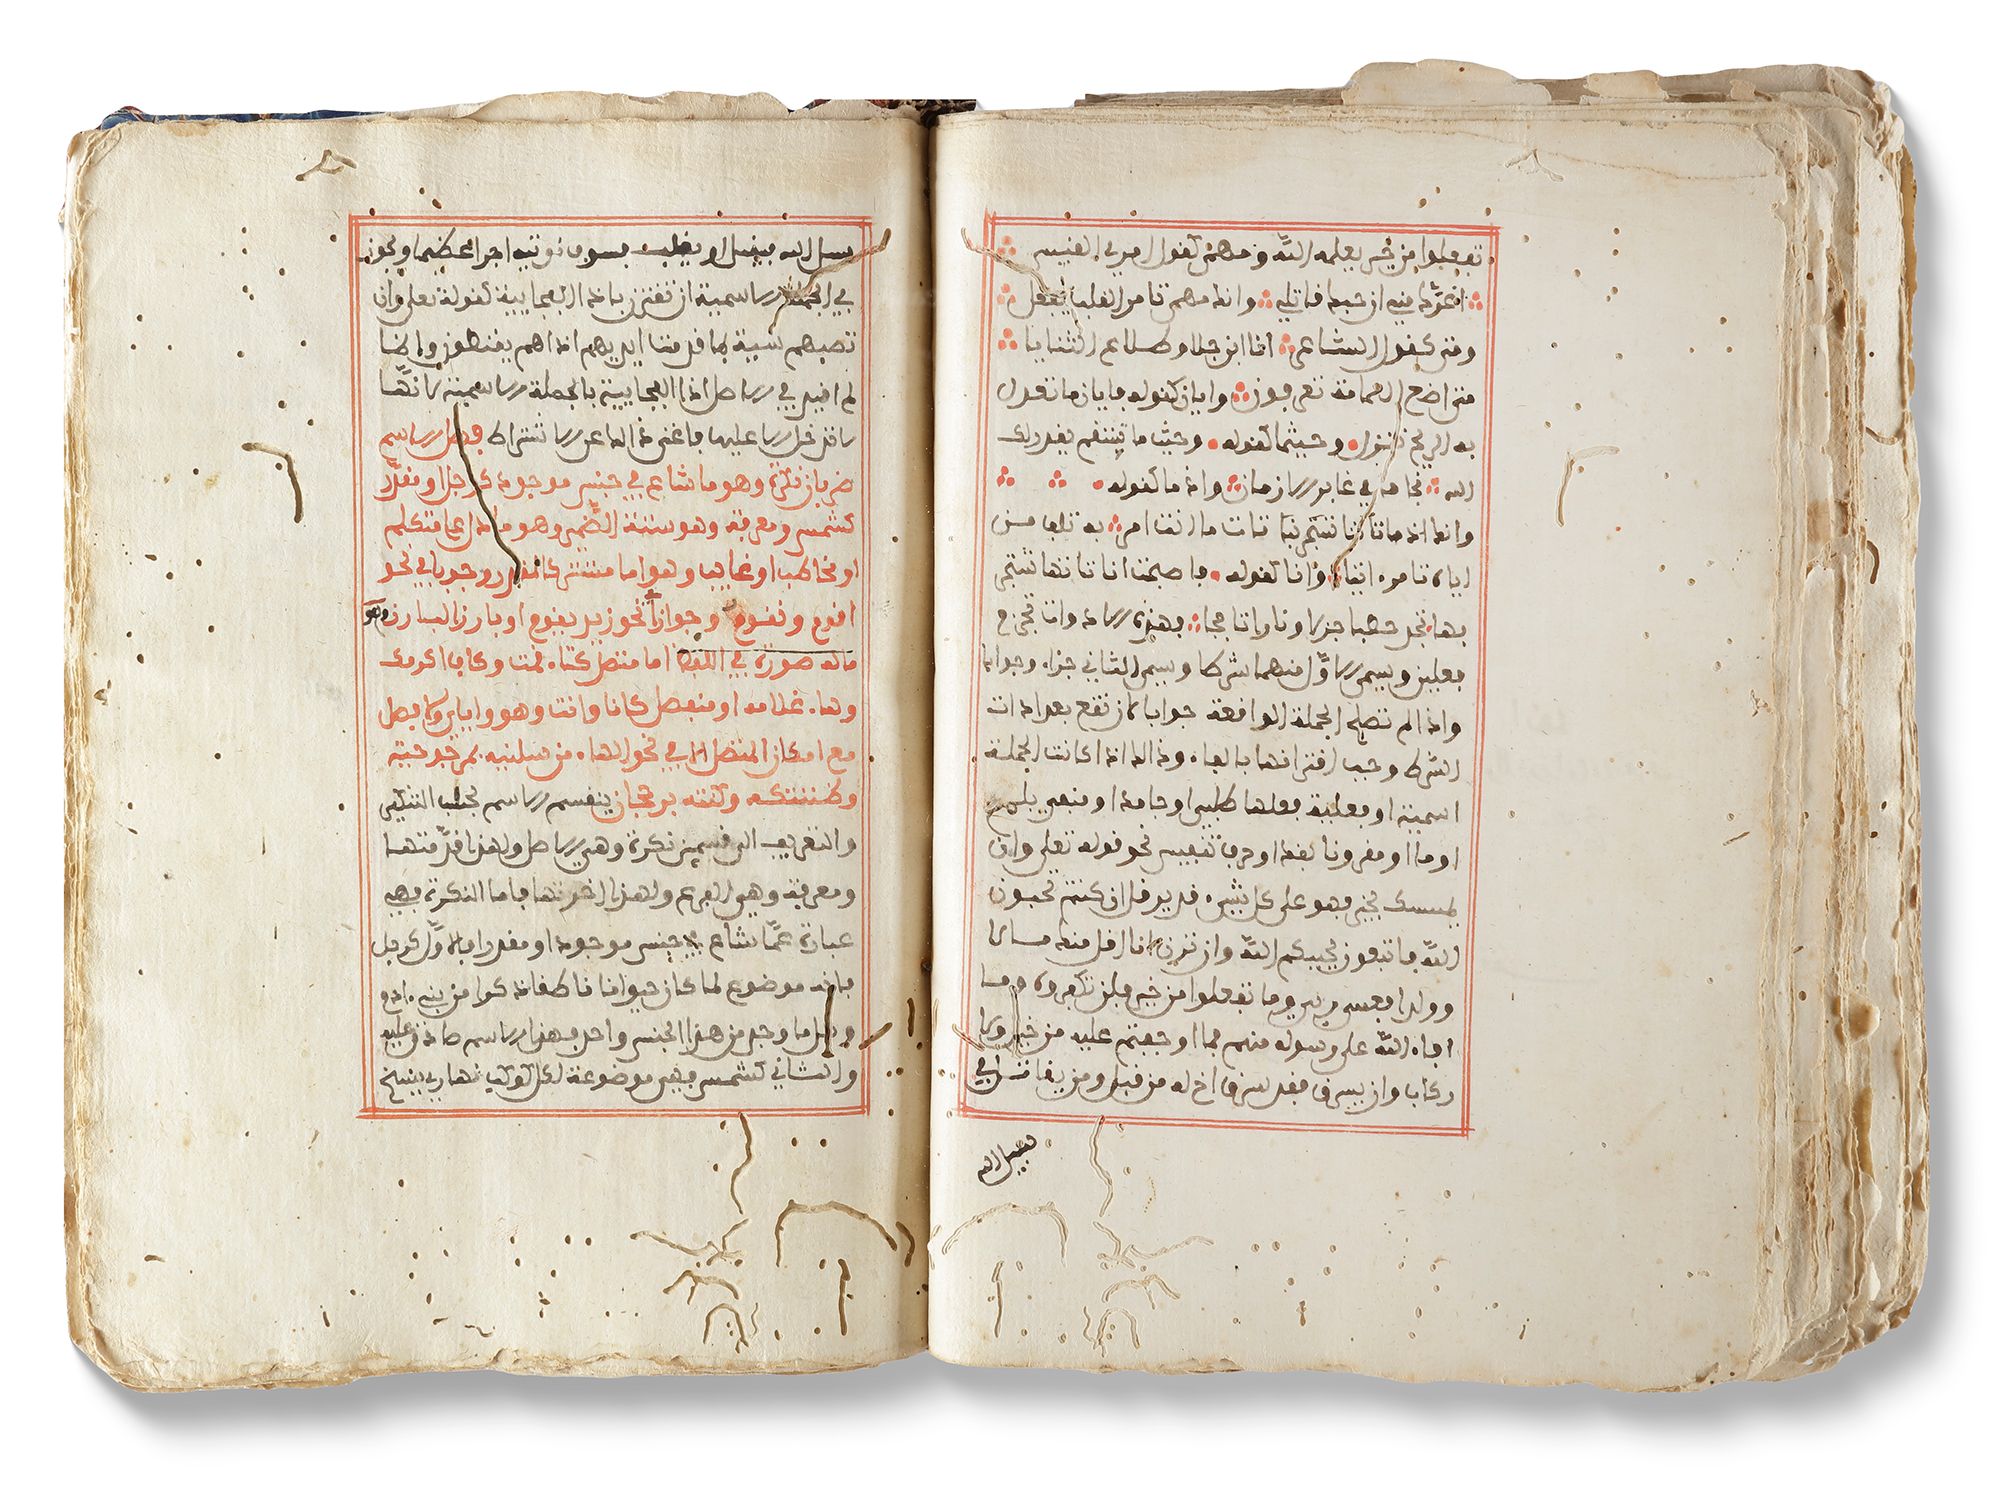 تفعلوا من خير يعلمه الله ومهما كقول امرئ القيس
أغرك مني أن حبك قاتلي وأنك مهما تأمر القلب يفعل
ومتى كقول الشاعر أنا ابن جلا وطلاع الثنايا
متى أضع العمامة تعرفون وأيان كقوله فأيان ما تعدل
به الريح تنزل وحيثما كقوله وحيث ما تستقم يقدر لك
الله نجاحا في غابر الأزمان وإذ ما كقوله
وإنك إذ ما تأت ما أنت آمر به تلف من
إياه تأمر آتيا وأنا كقوله فأصبحت أنا تأتها تستجر
بها تجد حطبا جزلا ونارا تأججا فهذه الأدوات تجزم
فعلين ويسمى الأول منهما شرطا ويسمى الثاني جزاء وجوابا
وإذا لم تصلح الجملة الواقعة جوابا لأن تقع بعد أداة
الشرط وجب اقترانها بالفاء وذلك إذا كانت الجملة
اسمية أو فعلية فعلها طلبي أو جامد أو منفي بلن
أو ما أو مقرونا بقد أو حرف تنفيس نحو قوله تعلى وإن
يمسسك بخير فهو على كل شيء قدير قل إن كنتم تحبون
الله فاتبعون يحببكم الله وإن ترن أنا أقل منك مالا
وولدا فعسى ربي وما تفعلوا من خير فلن تكفروه وما
أفاء الله على رسوله منهم فما أوجفتم عليه من خيل ولا
ركاب وإن يسرق فقد سرق أخ له من قبل ومن يقاتل في
سبيل الله
سبيل الله فيقتل أو يغلب فسوف نوتيه أجرا عظيما ويجوز
في الجملة الاسمية أن تقترن بإذا الفجايية كقوله تعلى وإن
تصبهم سيية بما قدمت أيديهم إذا هم يقنطون وإنما
لم أقيد في الأصل إذا الفجايية بالجملة الاسمية لأنها
لا تدخل إلا عليها فأغنى ذلك عن الاشتراط فصل الاسم
ضربان نكرة وهو ما شاع في جنس موجود كرجل أو مقدر
كشمس ومعرفة وهو ستة الضمير وهو ما دل على متكلم
أو مخاطب أو غايب وهو إما مستتر كالمقدر وجوبا في نحو
أقوم ونقوم وجوازا في نحو زيد يقوم أو بارز البارز وهو
ما له صورة في اللفظ إما متصل كتاء قمت وكاف أكرمك
وهاء غلامه أو منفصل كأنا وأنت وهو وإياي ولا فصل
مع إمكان المتصل إلا في نحو الهاء من سلنيه بمرجوحية
وظننتكه وكنته برجحان ينقسم الاسم بحسب التنكير
والتعريف إلى قسمين نكرة وهي الأصل ولهذا قدمتها
ومعرفة وهي الفرع ولهذا أخرتها فأما النكرة فهي
عبارة عما شاع في جنس موجود أو مقدر فالأول كرجل
فإنه موضوع لما كان حيوانا ناطقا ذكرا من بني آدم
وكل ما وجد من هذا الجنس واحد فهذا الاسم صادق عليه
والثاني كشمس فهي موضوعة لكل كوكب نهاري ينسخ